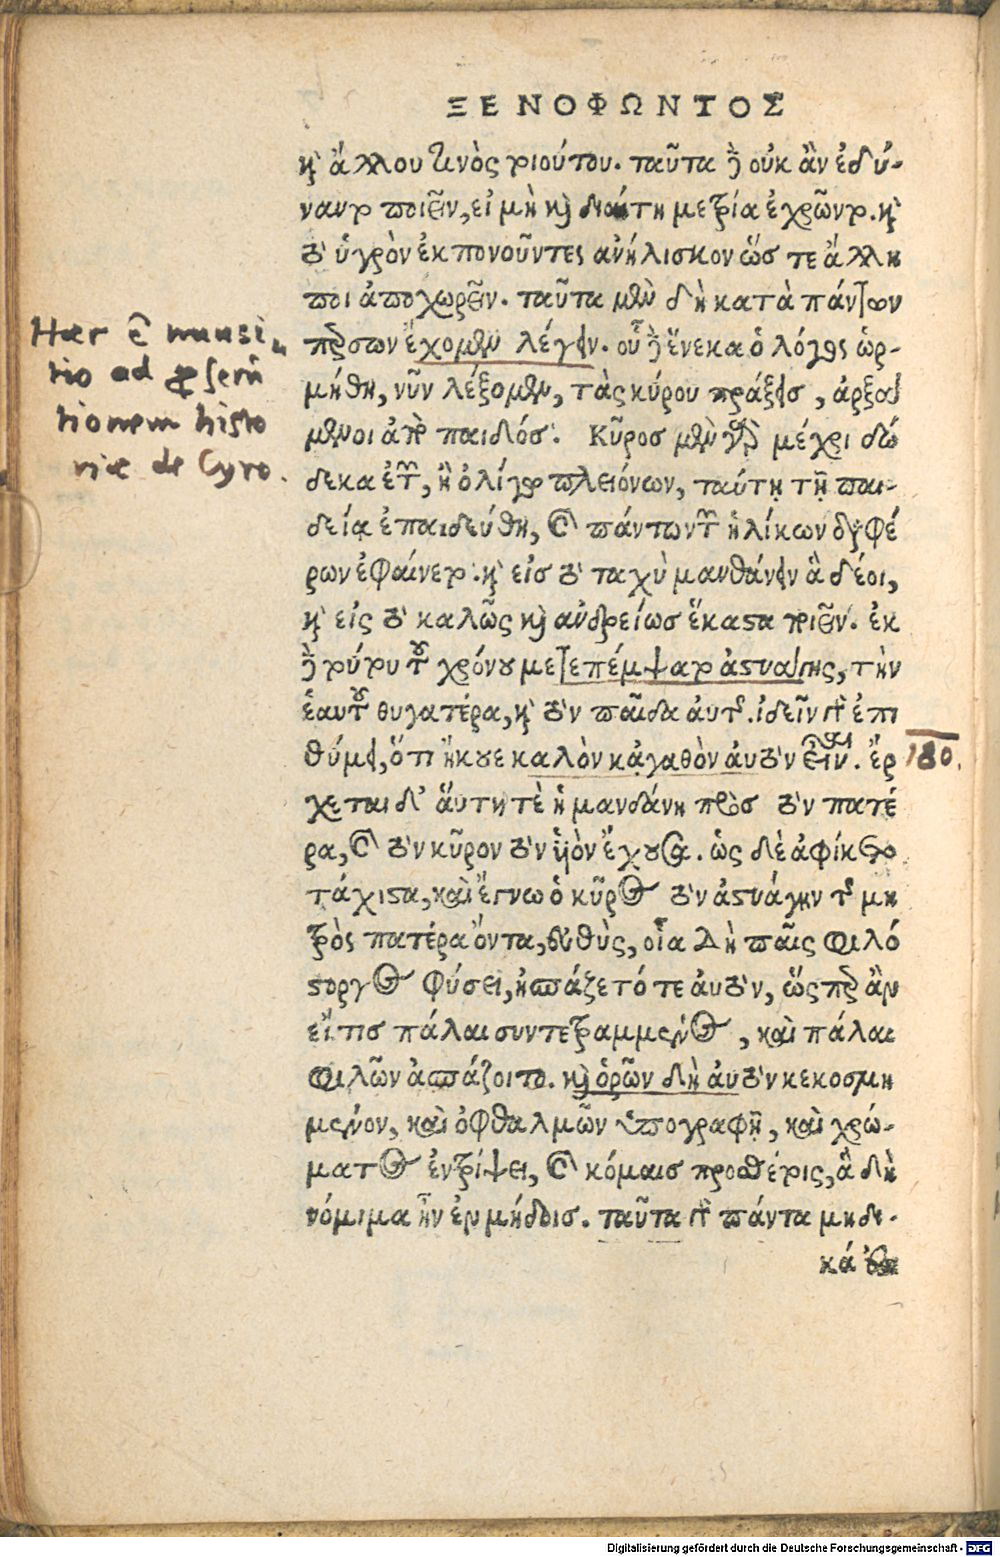 ΞΕΝΟΦΩΝΤΟΣ
ἢ ἄλλου τινὸς τοιούτου. ταῦτα δὲ οὐκ ἂν ἐδύ-
ναντο ποιεῖν, εἰ μὴ καὶ διαίτῃ μετρίᾳ ἐχρῶντο. καὶ
τὸ ὑγρὸν ἐκπονοῦντες ἀνήλισκον ὥς τε ἄλλῃ
ποι ἀποχωρεῖν. ταῦτα μὲν δὴ κατὰ πάντων
περσῶν ἔχομεν λέγειν. οὗ δὲ ἕνεκα ὁ λόγος ὡρ-
μήθη, νῦν λέξομεν, τὰς κύρου πράξεις, ἀρξά
μενοι ἀπὸ παιδός. Κῦρος μὲν γὰρ μέχρι δώ
δεκα ἐτῶν, ἢ ὀλίγῳ πλειόνων, ταύτῃ τῇ παι-
δείᾳ ἐπαιδεύθη, καὶ πάντων τῶν ἡλίκων διαφέ
ρων ἐφαίνετο. καὶ εἰς τὸ ταχὺ μανθάνειν ἃ δέοι,
καὶ εἰς τὸ καλῶς καὶ ἀνδρείως ἕκαστα ποιεῖν. ἐκ
δὲ τούτου τοῦ χρόνου μετεπέμψατο ἀστυάγης, τὴν
ἑαυτοῦ θυγατέρα, καὶ τὸν παῖδα αὐτῆς. ἰδεῖν γὰρ ἐπε
θύμει, ὅτι ἤκουε καλὸν κἀγαθὸν αὐτὸν εἶναι. ἔρ
χεται δ' αὐτή τε ἡ μανδάνη πρὸς τὸν πατέ
ρα, καὶ τὸν κῦρον τὸν υἱὸν ἔχουσα. ὡς δὲ ἀφίκετο
τάχιστα, καὶ ἔγνω ὁ κῦρος τὸν ἀστυάγην τῆς μη
τρὸς πατέρα ὄντα, εὐθὺς, οἷα δὴ παῖς φιλό
στοργος φύσει, ἠσπάζετό τε αὐτὸν, ὥσπερ ἂν
εἴ τις πάλαι συντεθραμμένος, καὶ πάλαι
φιλῶν ἀσπάζοιτο. καὶ ὁρῶν δὴ αὐτὸν κεκοσμη
μένον, καὶ ὀφθαλμῶν ὑπογραφῇ, καὶ χρώ-
ματος ἐντρίψει, καὶ κόμαις προσθέτοις, ἃ δὴ
νόμιμα ἦν ἐν μήδοις. ταῦτα γὰρ πάντα μηδι-
κά
Hæc ē
tio ad
tionem histo
riæ de Cyro.
180.
Digitalisierung gefördert durch die Deutsche Forschungsgemeinschaft - DFG